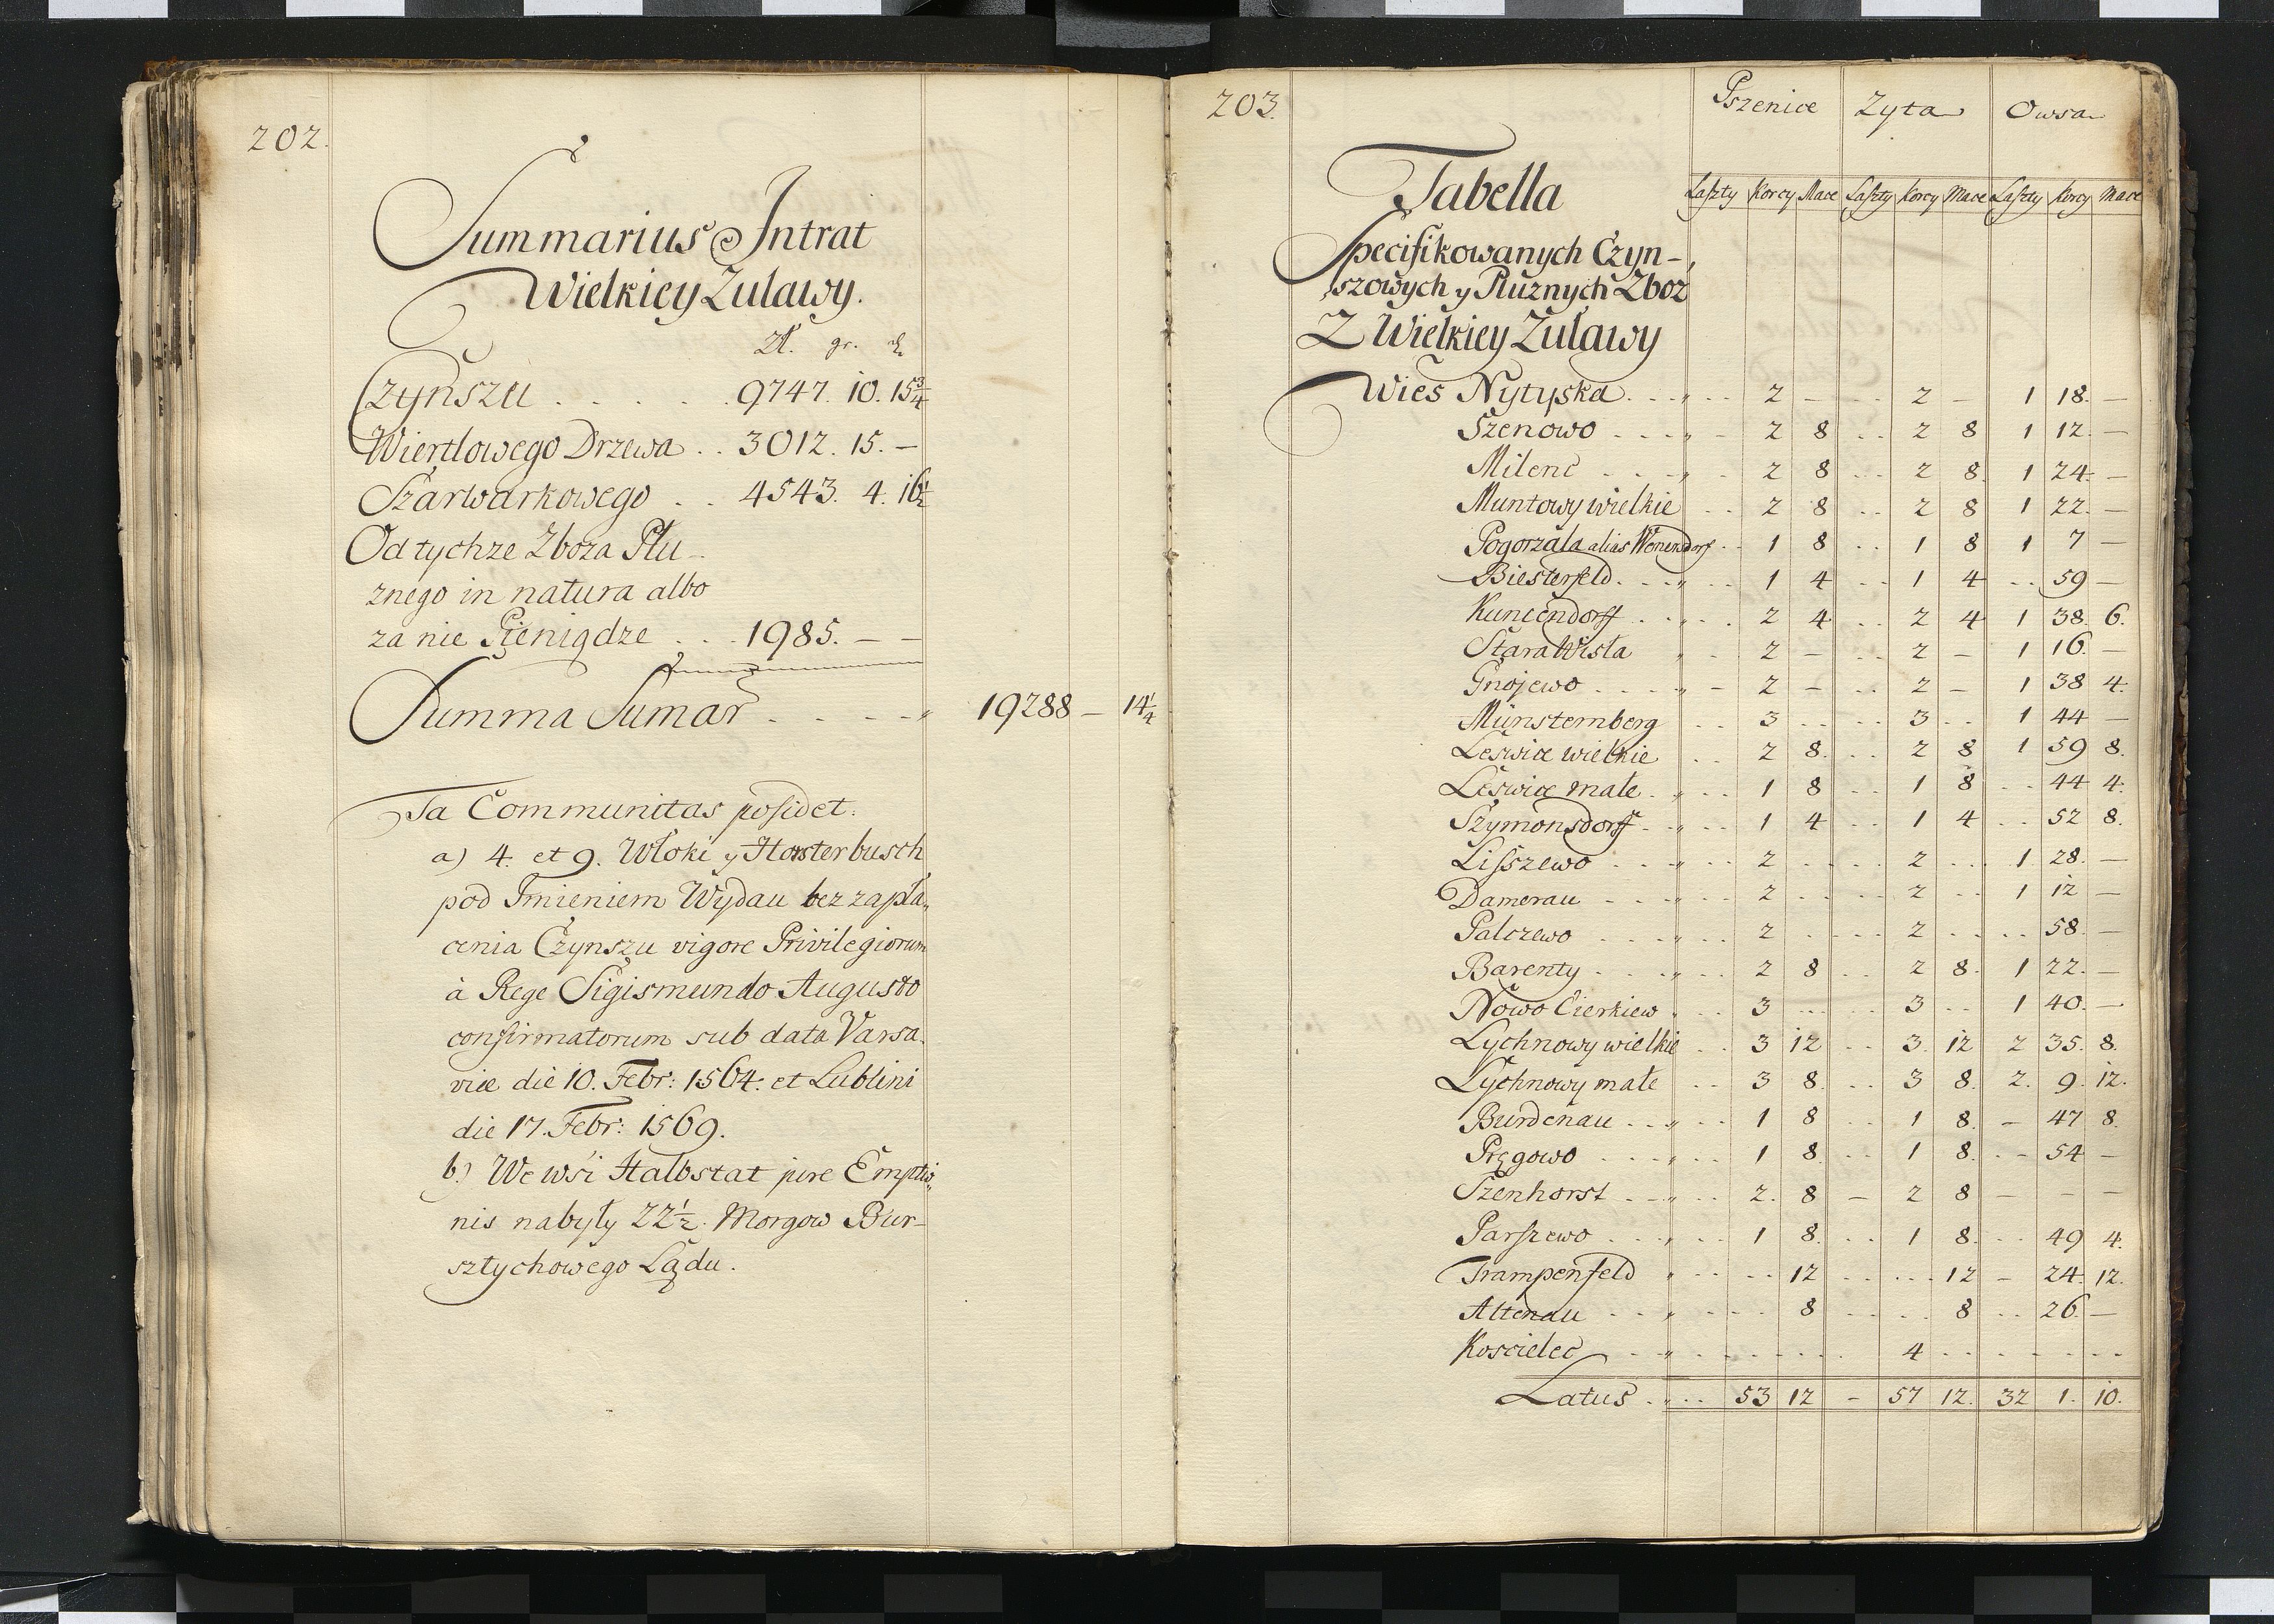 202.
Summarius Intrat
Wielkiey Zuławy.
Zł. gr.
Czynszu . . . . . 9747. 10. 15 3/4
Wiertlowego Drzewa . . 3012. 15. —
Szarwarkowego . . 4543. 4. 16 1/2
Od tychze Zboza Płu-
znego in natura albo
za nie Pieniądze . . . 1985. — —
Summa Sumar . . . . 19288 — 14 1/4
Ta Communitas possidet.
a) 4. et 9. Włoki y Horsterbusch
pod Imieniem Wydau bez zapła„
cenia Czynszu vigore Privilegiorum
à Rege Sigismundo Augusto
confirmatorum sub data Varsa.
viæ die 10. Febr: 1564. et Lublini
die 17. Febr: 1569.
b.) We wsi Halbstat jure Emptio„
nis nabyły 22 1/2. Morgow Bur-
sztychowego Lądu.
203.
Pszenice Zyta Owsa
Laszty Korcy Mace Laszty Korcy Mace Laszty Korcy Mace
Tabella
Specifikowanych Czyn-
szowych y Płuznych Zboz
Z Wielkiey Zuławy
Wies Nytyska . . . „ . . 2 — . . 2 — 1 18. —
Szenowo . . . „ - 2 8 . . 2 8 1 12. —
Milenc . . . „ . 2 8 . . 2 8. 1 24. —
Muntowy wielkie . . 2 8 . . 2 8 1 22. —
Pogorzała alias Wernersdorf . . 1 8 . . 1 8 1 7 —
Biesterfeld . . . „ . . 1 4 . . 1 4 . . 59 —
Kuncendorff . . „ . . 2 4 . . 2 4 1 38. 6.
Stara Wisła „ . 2 — . . 2 — 1 16. —
Gnojewo . . . . „ - 2 — . . 2 — 1 38 4.
Münsternberg . . 3 . . . . 3 . . 1 44 —
Leswice wielkie . . 2 8. . . 2 8 1 59 8.
Leswice małe . „ . . 1 8 . . 1 8 . . 44 4.
Szymonsdorff . „ . . 1 4 . . 1 4 . . 52 8.
Lisszewo . . . „ . . 2 . . . . 2 . . . 1 28. —
Damerau . . . „ . . 2 . . . . 2 . . 1 12 —
Palczewo . . . „ . . 2 . . . . 2 . . . . 58. —
Barenty . . . „ . . 2 8 . . 2 8. 1 22. —
Nowo Cierkiew . . . 3 . . . . 3 . . 1 40. —
Lychnowy wielkie . . 3 12 . . 3. 12 2 35. 8.
Lychnowy małe . . 3 8. . . 3 8. 2. 9. 12.
Burdenau . . „ . . 1 8 . . 1 8. — 47 8.
Pręgowo . . . „ . . 1 8. . . 1 8. . - 54 —
Szenhorst . . „ . . 2. 8 — 2 8 — — —
Parszewo . . . „ . . 1 8. . . 1 8. . . 49 4.
Trampenfeld „ . . . . 12 . . . . . 12 — 24. 12.
Altenau . . . „ . . . . 8 . . . . 8 . . 26. —
Koscielec . . „ . . . . . . . 4 . . . . . . .
Latus . „ . . 53 12 — 57 12. 32 1. 10.